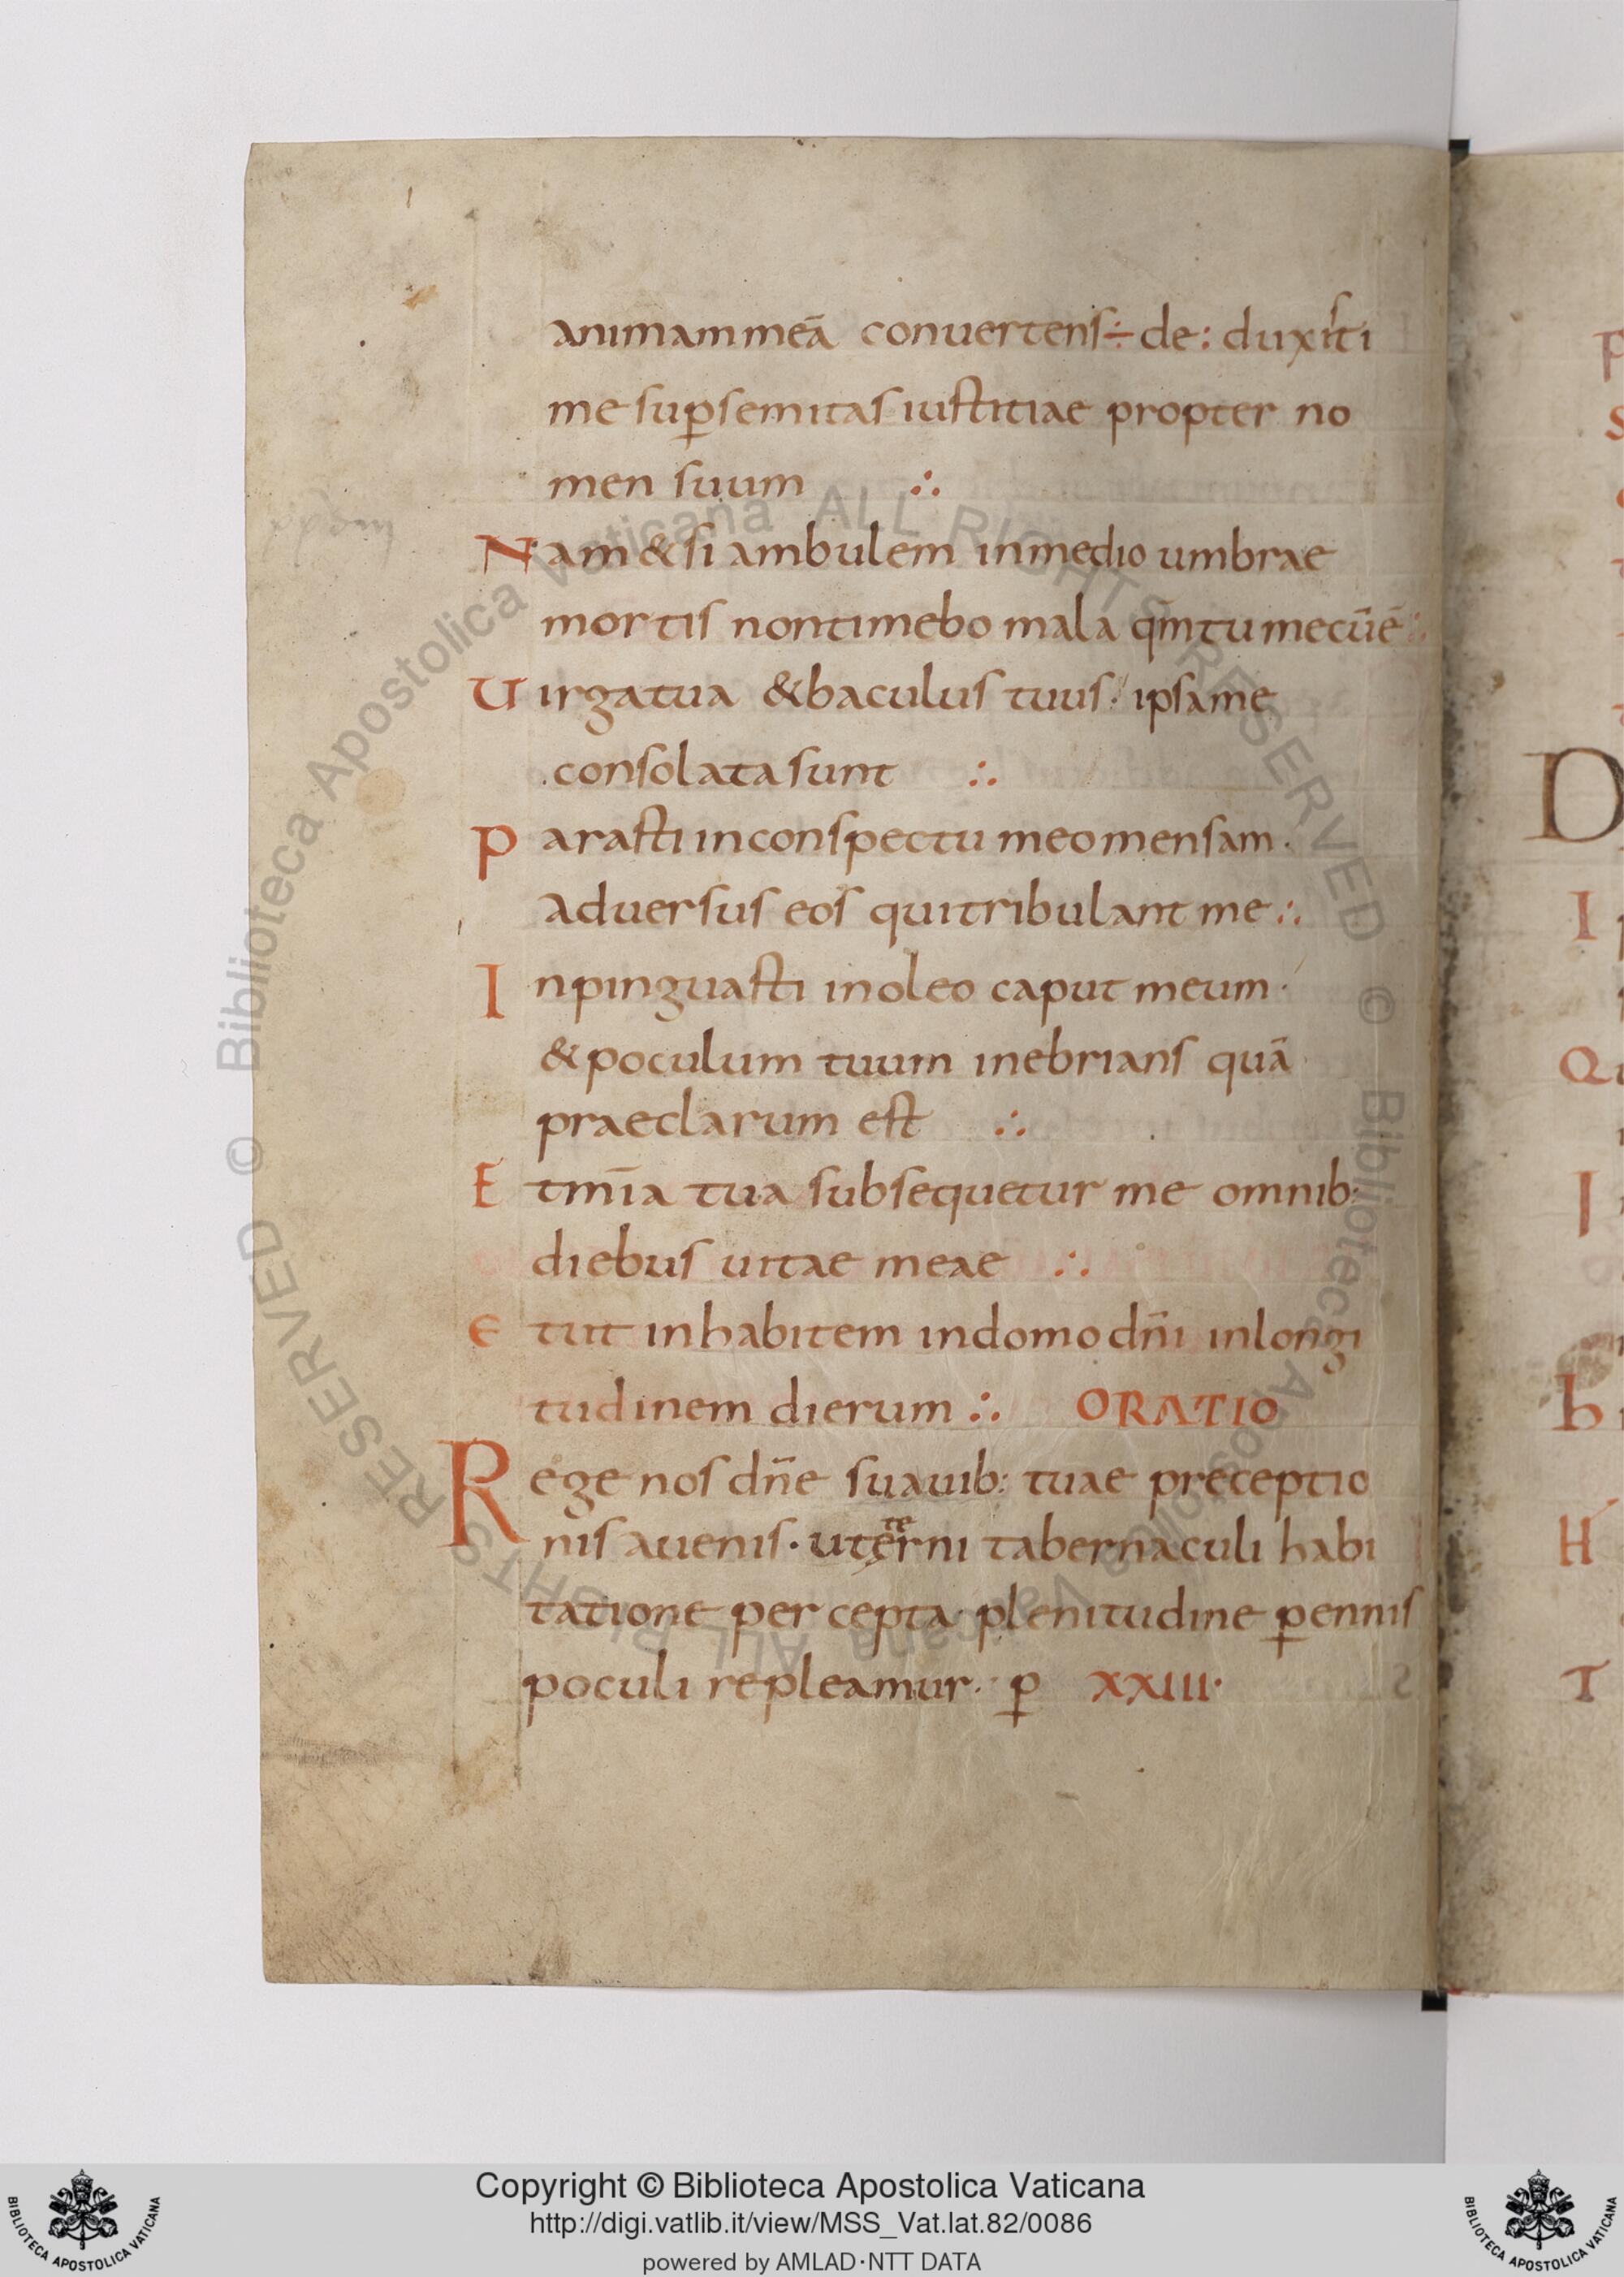 animam meā conuertens ÷ de: duxisti
me sup̱ semitas iustitiae propter no
men suum ∴
Nam & si ambulem in medio umbrae
mortis non timebo mala qm̄ tu mecū ē ∴
Uirga tua & baculus tuus · ipsa me
consolata sunt ∴
Parasti in conspectu meo mensam ·
aduersus eos qui tribulant me ∴
Inpinguasti in oleo caput meum ·
& poculum tuum inebrians quā
praeclarum est ∴
Et mīa tua subsequetur me omnib:
diebus uitae meae ∴
Et ut inhabitem in domo dn̄i in longi
tudinem dierum ∴ ORATIO
Rege nos dn̄e suauib: tuae preceptio
te
nis auenis · ut ęrni tabernaculi habi
tatione percepta plenitudine p̱ennis
poculi repleamur · p̱ XXIII ·
P
S
D
I
Q
I
h
H
T
Biblioteca Apostolica Vaticana ALL RIGHTS RESERVED © Biblioteca Apostolica Vaticana ALL RIGHTS RESERVED ©
Copyright © Biblioteca Apostolica Vaticana
http://digi.vatlib.it/view/MSS_Vat.lat.82/0086
powered by AMLAD·NTT DATA
BIBLIOTECA APOSTOLICA VATICANA
BIBLIOTECA APOSTOLICA VATICANA